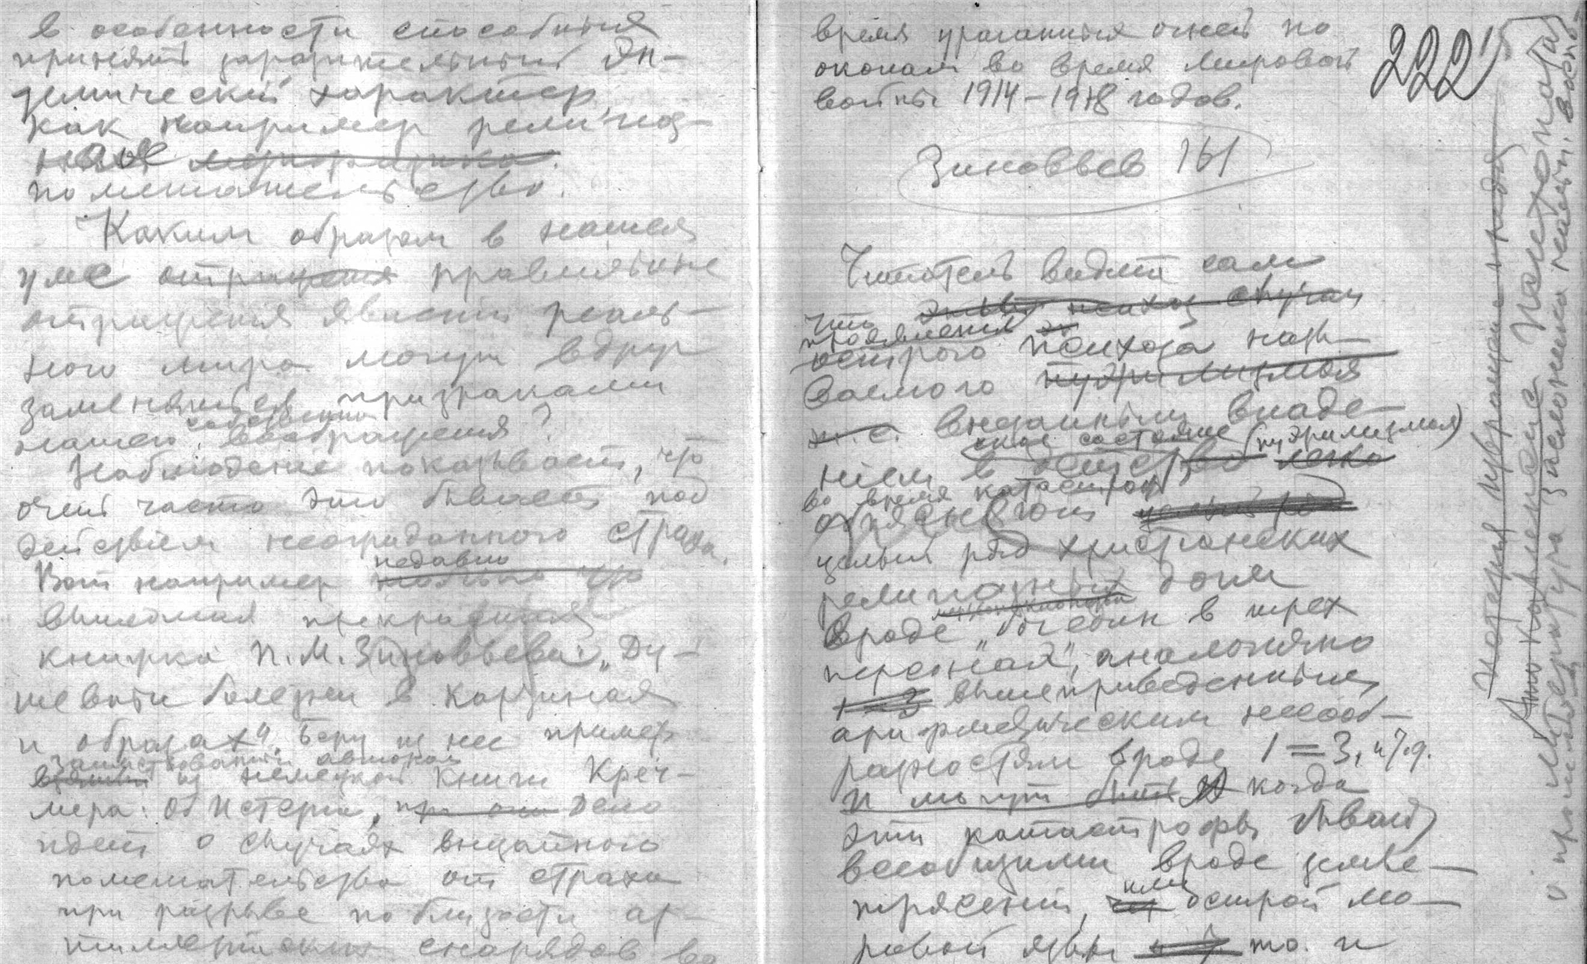 в особенности способныя
принять заразительный эпи-
демический характер,
как например религиоз-
ное
помешательство.
Каким образом в нашем
уме отражения правильные
отражения явлений реаль-
ного мира могут вдруг
замениться призраками
нашего собственнаго воображения?
Наблюдение показывает, что
очень часто это бывает под
действием неожиданного страха.
Вот например недавно
вышедшая прекрасная
книжка П. М. Зиновьева: „Ду-
шевные болезни в картинах
и образах". Беру из нее пример
заимствованный автором из немецкой книги Креч-
мера: Об Истерии, Дело
идет о случаях внезапного
помешательства от страха
при разрыве поблизости ар-
тиллерийских снарядов во
время ураганных огней по
окопам во время Мировой
войны 1914–1918 годов.
222
Зиновьев 161
Читатель видит сам
что
проявления
острого психоза назы-
ваемого
внезапным впаде-
нием в состояние (пуэрилизма)
во время катастроф
объясняют
целый ряд христианских
религиозных догм
вроде „бог един в трех
персонах", аналогично
вышеприведенным
арифметическим несооб-
разностям вроде 1=3, и т.д.
И могут быть когда
эти катастрофы бывают
всеобщими вроде земле-
трясений, или острой мо-
ровой язвы то и